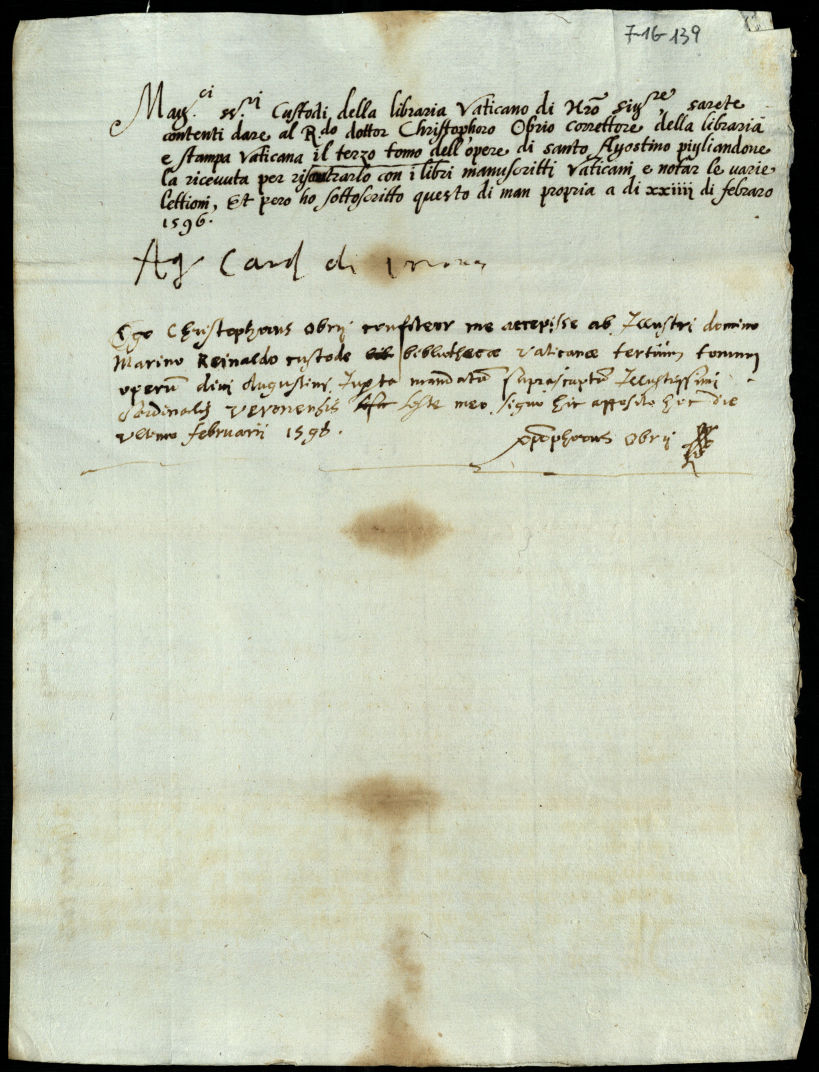 7-16-139
Mag.ci ss.ri Custodi della libraria Vaticano di Nrõ Sig.re sarete
contenti dare al R.do dottor Christophoro Obrio correttore della libraria
e stampa Vaticana il terzo tomo dell'opere di santo Agostino pigliandone
la ricevuta per riscontrarlo con i libri manuscritti Vaticani e notar le varie
lettioni, Et pero ho sottoscritto questo di man propria a di xxiiii di febraro
1596.
Ag Card di
Ego Christophorus Obrij confiteor me accepisse ab Illustri domino
Marino Reinaldo custode bibliothecæ Vaticanæ tertium tomum
operũ divi Augustini Juxta mandatũ suprascriptũ Illustrissimi
Cardinalis Veronensis teste meo signo hic apposito hoc die
Ultimo februarii 1596.
xpõphorus Obrij